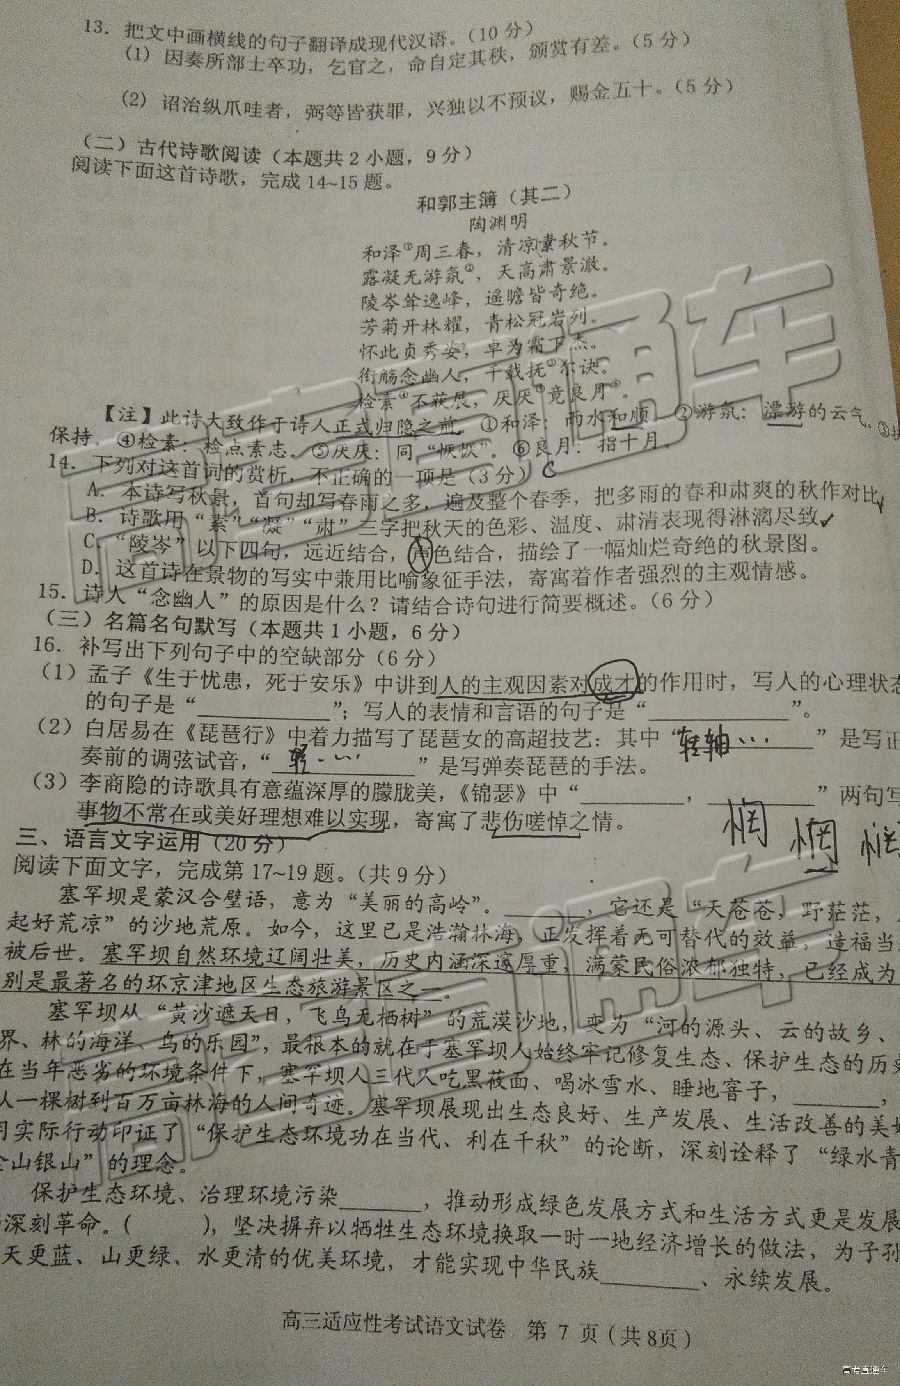 13. 把文中画横线的句子翻译成现代汉语。(10分)
(1) 因奏所部士卒功，乞官之，命自定其秩，颁赏有差。(5分)
(2) 诏治纵爪哇者，弼等皆获罪，兴独以不预议，赐金五十。(5分)
(二) 古代诗歌阅读（本题共2小题，9分）
阅读下面这首诗歌，完成14~15题。
和郭主簿（其二）
陶渊明
和泽①周三春，清凉素秋节。
露凝无游氛②，天高肃景澈。
陵岑耸逸峰，遥瞻皆奇绝。
芳菊开林耀，青松冠岩列。
怀此贞秀姿，卓为霜下杰。
衔觞念幽人，千载抚③尔诀。
检素④不获展，厌厌⑤竟良月⑥。
【注】此诗大致作于诗人正式归隐之前。①和泽：雨水和顺。②游氛：漂游的云气。③
保持。④检素：检点素志。⑤厌厌：同“恹恹”。⑥良月：指十月。
14. 下列对这首词的赏析，不正确的一项是（3分）C
A. 本诗写秋景，首句却写春雨之多，遍及整个春季，把多雨的春和肃爽的秋作对比
B. 诗歌用“素”“凝”“肃”三字把秋天的色彩、温度、肃清表现得淋漓尽致
C. “陵岑”以下四句，远近结合，声色结合，描绘了一幅灿烂奇绝的秋景图。
D. 这首诗在景物的写实中兼用比喻象征手法，寄寓着作者强烈的主观情感。
15. 诗人“念幽人”的原因是什么？请结合诗句进行简要概述。(6分)
(三) 名篇名句默写（本题共1小题，6分）
16. 补写出下列句子中的空缺部分（6分）
(1) 孟子《生于忧患，死于安乐》中讲到人的主观因素对成才的作用时，写人的心理状态
的句子是“____________”；写人的表情和言语的句子是“____________”。
(2) 白居易在《琵琶行》中着力描写了琵琶女的高超技艺：其中“转轴…”是写正
奏前的调弦试音，“轻…”是写弹奏琵琶的手法。
(3) 李商隐的诗歌具有意蕴深厚的朦胧美，《锦瑟》中“________，________”两句写
事物不常在或美好理想难以实现，寄寓了悲伤嗟悼之情。
惘 惘 惘
三、语言文字运用（20分）
阅读下面文字，完成第17~19题。(共9分)
塞罕坝是蒙汉合璧语，意为“美丽的高岭”。______，它还是“天苍苍，野茫茫，
起好荒凉”的沙地荒原。如今，这里已是浩瀚林海，正发挥着无可替代的效益，造福当
被后世。塞罕坝自然环境辽阔壮美，历史内涵深邃厚重，满蒙民俗浓郁独特，已经成为
别是最著名的环京津地区生态旅游景区之一。
塞罕坝从“黄沙遮天日，飞鸟无栖树”的荒漠沙地，变为“河的源头、云的故乡、
界、林的海洋、鸟的乐园”，最根本的就在于塞罕坝人始终牢记修复生态、保护生态的历史
在当年恶劣的环境条件下，塞罕坝人三代人吃黑莜面、喝冰雪水、睡地窖子，______，
从一棵树到百万亩林海的人间奇迹。塞罕坝展现出生态良好、生产发展、生活改善的美好
用实际行动印证了“保护生态环境功在当代、利在千秋”的论断，深刻诠释了“绿水青
金山银山”的理念。
保护生态环境、治理环境污染______，推动形成绿色发展方式和生活方式更是发展
深刻革命。(　　)，坚决摒弃以牺牲生态环境换取一时一地经济增长的做法，为子孙
天更蓝、山更绿、水更清的优美环境，才能实现中华民族______、永续发展。
高三适应性考试语文试卷 第 7 页（共8页）
高考直通车
高考直通车
高考直通车